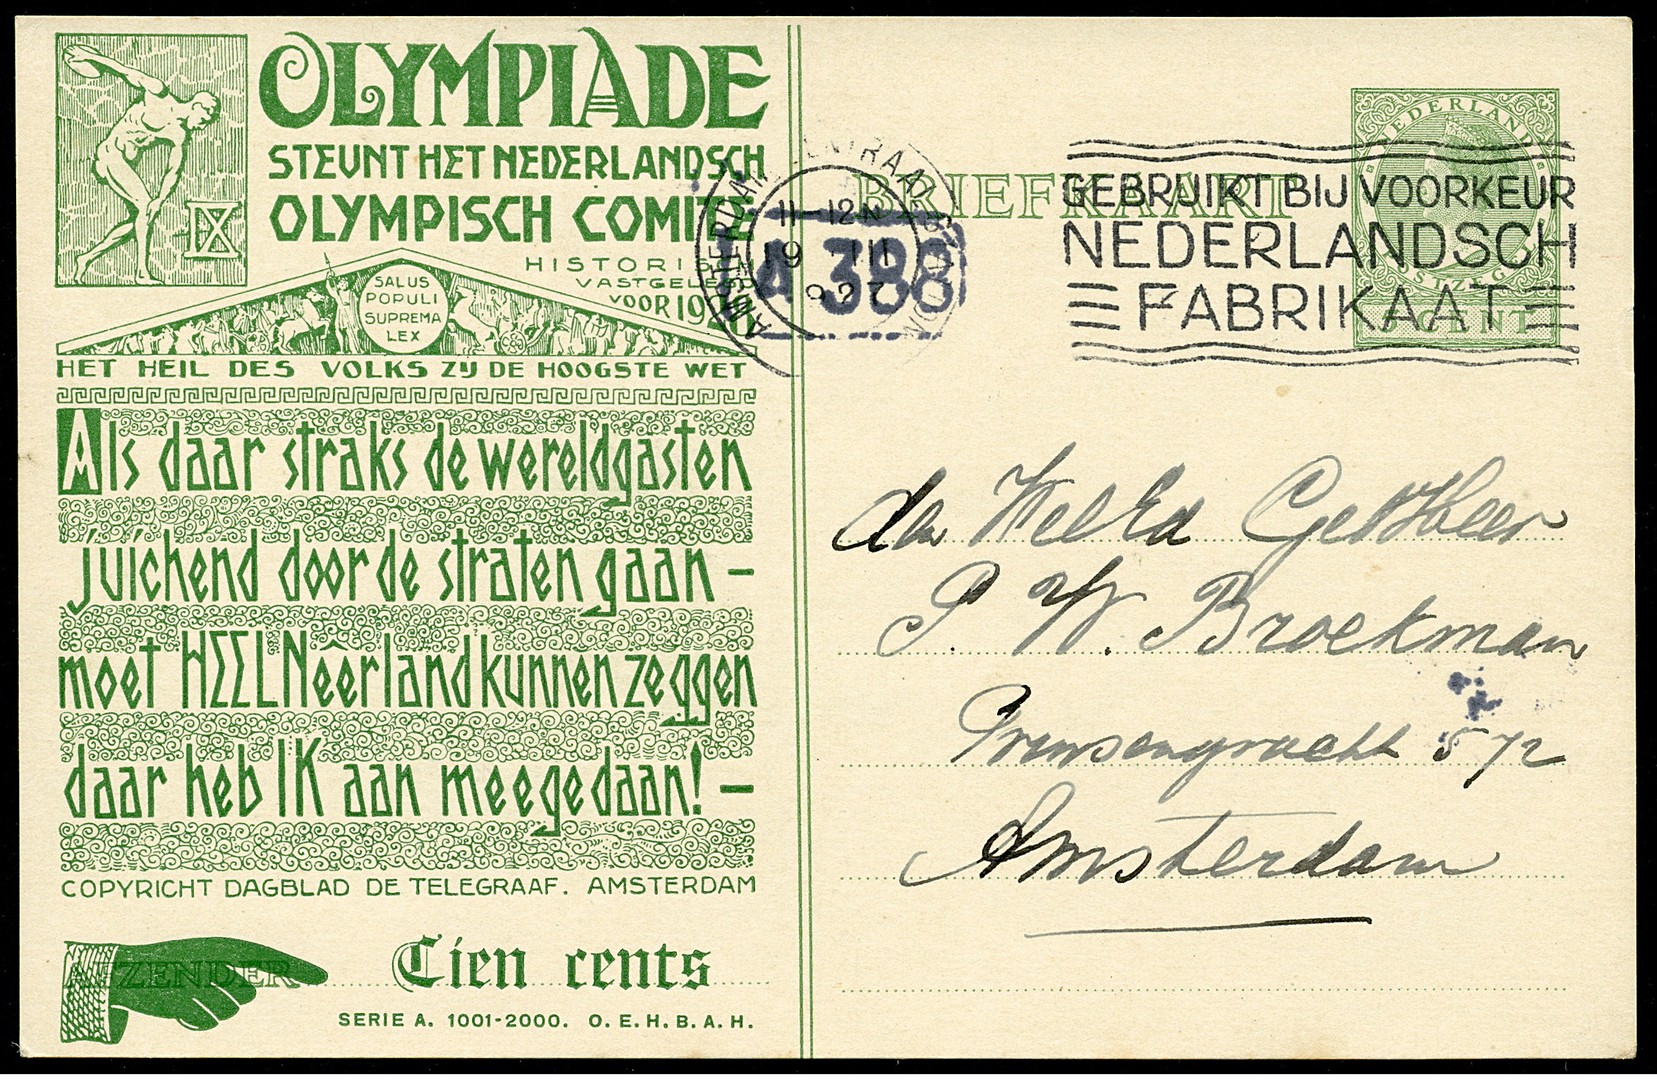 OLYMPIADE
STEUNT HET NEDERLANDSCH
OLYMPISCH COMITE
HISTORIS
VASTGELEGD
VOOR 1928
SALUS
POPULI
SUPREMA
LEX
HET HEIL DES VOLKS ZIJ DE HOOGSTE WET
Als daar straks de wereldgasten
juichend door de straten gaan –
moet HEEL Neêrland kunnen zeggen
daar heb IK aan meegedaan! –
COPYRICHT DAGBLAD DE TELEGRAAF. AMSTERDAM
AFZENDER
Tien cents
SERIE A. 1001-2000. O. E. H. B. A. H.
IX
BRIEFKAART
AMSTERDAM CENTRAAL STATION
11-12 N
19 III
1927
A 388
NEDERLAND
POSTZEGEL
5 CENT
GEBRUIKT BIJ VOORKEUR
NEDERLANDSCH
FABRIKAAT
den WelEd Geb Heer
P. W. Broekman
Prinsengracht 572
Amsterdam